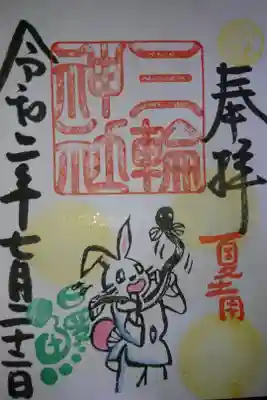 奉拝
夏土用
三輪
神社
令和二年七月二十二日